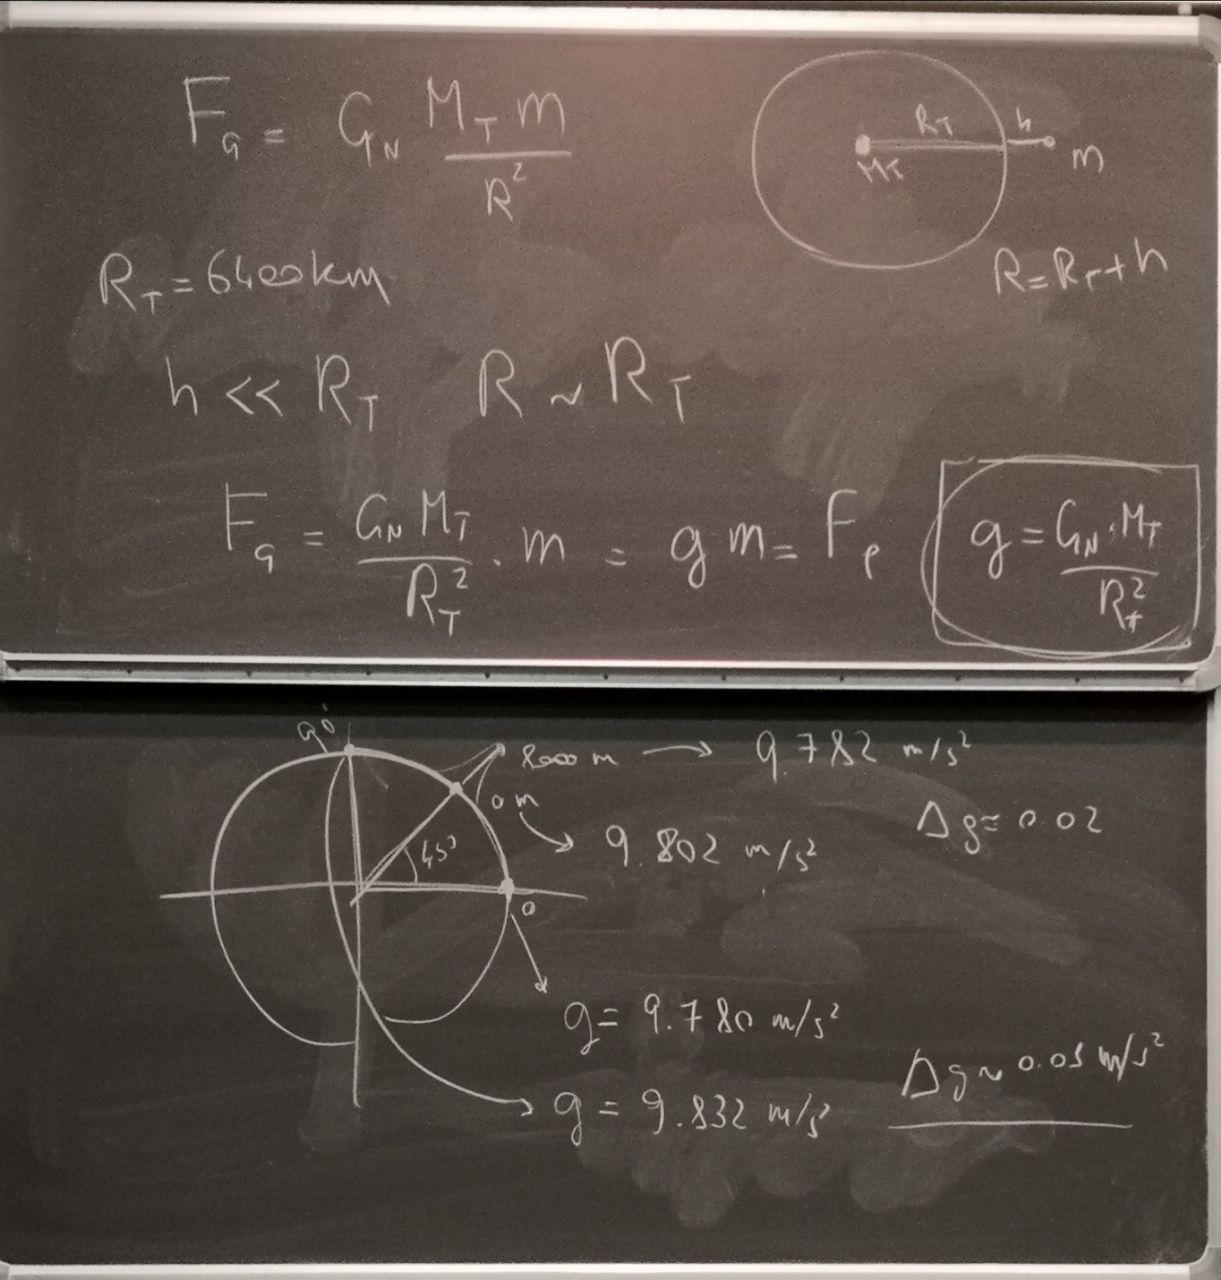 F_G = G_N M_T m / R²
R_T h
M_T m
R_T = 6400 km
R = R_T + h
h << R_T R ~ R_T
F_G = G_N M_T / R_T² · m = g m = F_P
g = G_N · M_T / R_T²
90°
8000 m → 9.782 m/s²
0 m → 9.802 m/s²
Δg = 0.02
45°
0
g = 9.780 m/s²
Δg ~ 0.05 m/s²
g = 9.832 m/s²